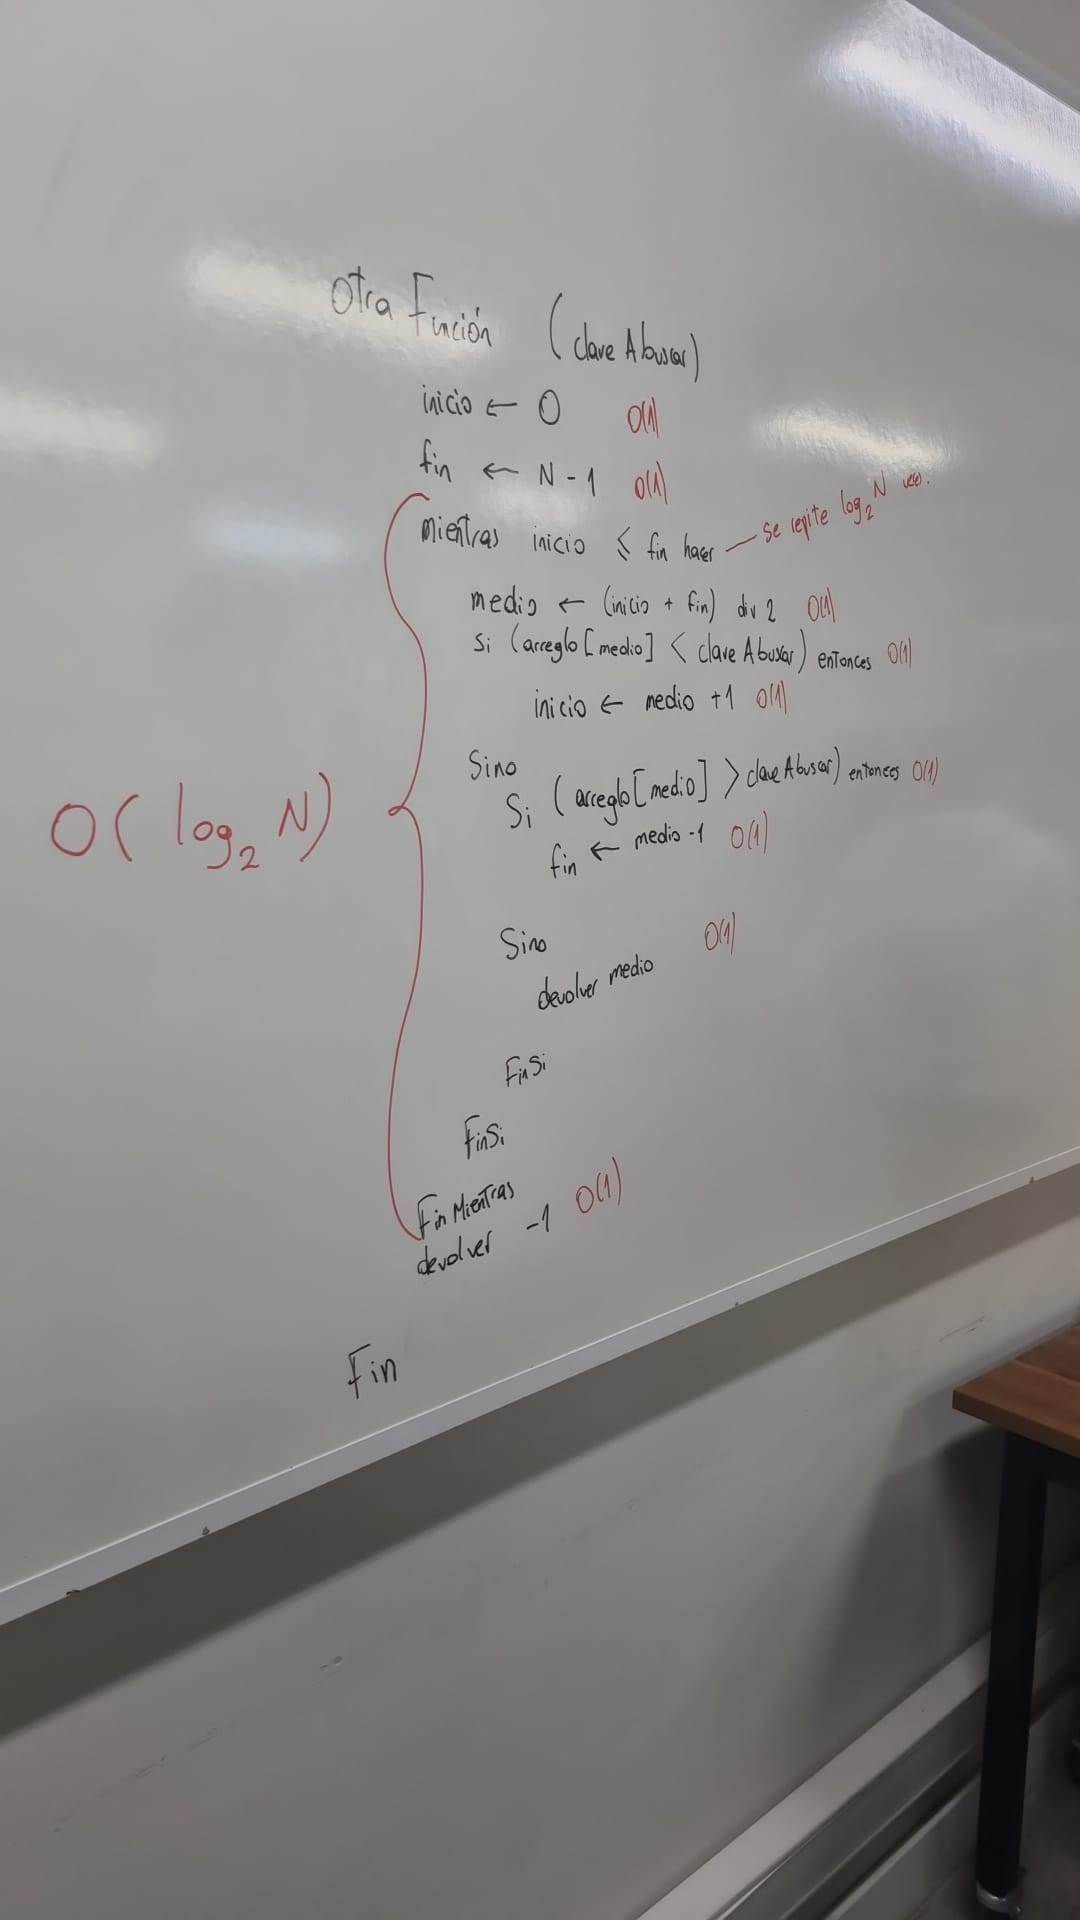 Otra Función (clave A buscar)
inicio ← 0 O(1)
fin ← N - 1 O(1)
Mientras inicio ≤ fin hacer — se repite log₂N veces.
medio ← (inicio + fin) div 2 O(1)
Si (arreglo [medio] < clave A buscar) entonces O(1)
inicio ← medio + 1 O(1)
Sino
Si (arreglo [medio] > clave A buscar) entonces O(1)
fin ← medio - 1 O(1)
O( log₂ N)
Sino O(1)
devolver medio
FinSi
FinSi
Fin Mientras
devolver -1 O(1)
Fin